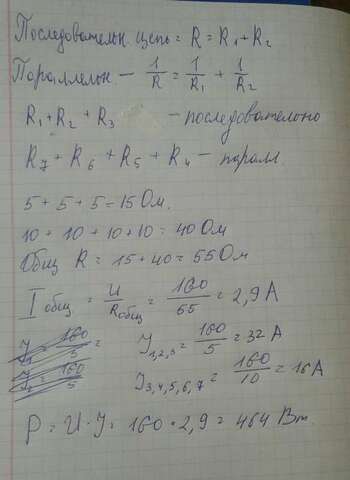 Последовательн. цепь = R = R₁ + R₂
Параллельн. – 1/R = 1/R₁ + 1/R₂
R₁ + R₂ + R₃ – последовательно
R₇ + R₆ + R₅ + R₄ – паралл.
5 + 5 + 5 = 15 Ом.
10 + 10 + 10 + 10 = 40 Ом
Общ R = 15 + 40 = 55 Ом
I общ = U/Rобщ = 160/55 = 2,9 А
J₁ = 160/5 = J₁,₂,₃ = 160/5 = 32 А
J₂ = 160/5 J₃,₄,₅,₆,₇ = 160/10 = 16 А
P = U · J = 160 · 2,9 = 464 Вт.